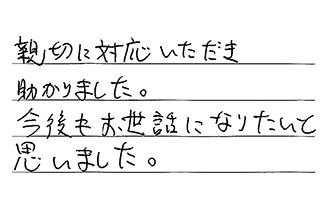 親切に対応いただき
助かりました。
今後もお世話になりたいと
思いました。